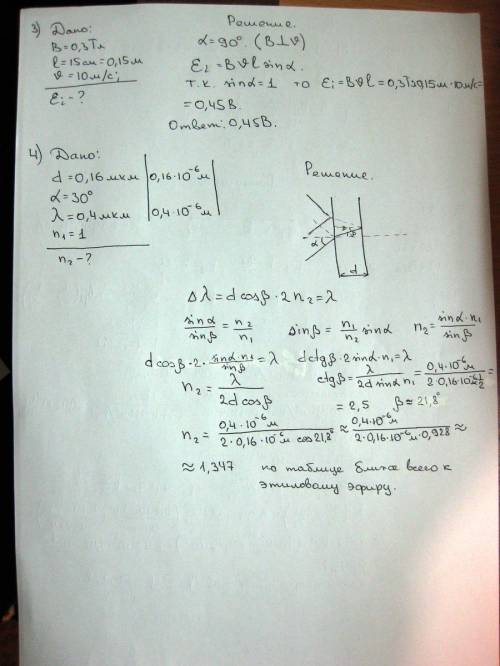 3) Дано:
B=0,3Тл
l=15см=0,15м
v=10м/с;
Ei-?
Решение.
α=90°. (B⊥v)
Ei=Bvl sinα.
т.к. sinα=1 то Ei=Bvl=0,3Тл·0,15м·10м/с=
=0,45В.
Ответ: 0,45В.
4) Дано:
d=0,16мкм | 0,16·10⁻⁶м
α=30°
λ=0,4мкм | 0,4·10⁻⁶м
n₁=1
n₂-?
Решение.
α β
d
Δλ=d cosβ·2n₂=λ
sinα/sinβ=n₂/n₁ sinβ=n₁/n₂ sinα n₂=sinα·n₁/sinβ
d cosβ·2·sinα·n₁/sinβ=λ d ctgβ·2sinα·n₁=λ
n₂=λ/2d cosβ ctgβ=λ/2d sinα n₁=0,4·10⁻⁶м/2·0,16·10⁻⁶·1/2=
=2,5 β≈21,8°
n₂=0,4·10⁻⁶м/2·0,16·10⁻⁶м cos21,8° ≈ 0,4·10⁻⁶м/2·0,16·10⁻⁶м·0,928 ≈
≈1,347 по таблице ближе всего к
этиловому эфиру.